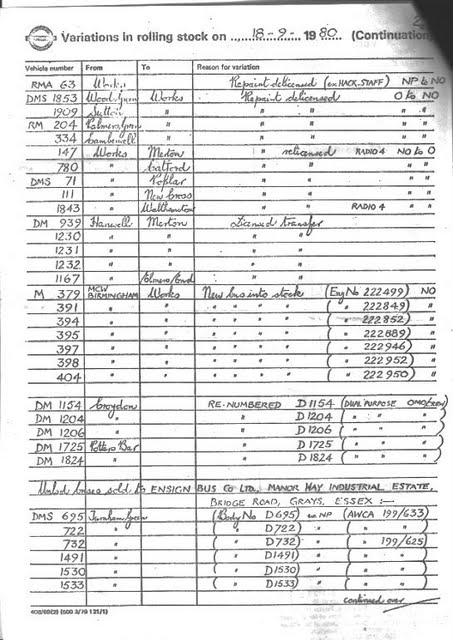 Variations in rolling stock on 18-9- 1980 (Continuation
Vehicle number From To Reason for variation
RMA 63 Works Repaint delicensed (ex HACK, STAFF) NP to NO
DMS 1853 Wood Green Works Repaint delicensed O to NO
1909 Sutton " " " " "
RM 204 Palmers Green " " " " "
334 Camberwell " " " " "
147 Works Merton " relicensed RADIO 4 NO to O
780 " Catford " " " "
DMS 71 " Poplar " " " "
111 " New Cross " " " "
1843 " Walthamstow " " RADIO 4 " "
DM 939 Hanwell Merton Licensed transfer
1230 " " " "
1231 " " " "
1232 " " " "
1167 " Palmers Grn " "
M 379 MCW BIRMINGHAM Works New bus into stock (Eng No 222499) NO
391 " " " " " " ( " " 222849) "
394 " " " " " " ( " " 222852) "
395 " " " " " " ( " " 222889) "
397 " " " " " " ( " " 222946) "
398 " " " " " " ( " " 222952) "
404 " " " " " " ( " " 222950) "
DM 1154 Croydon RE-NUMBERED D1154 (DUAL PURPOSE OMO/CREW)
DM 1204 " D1204 ( " " " )
DM 1206 " D1206 ( " " " )
DM 1725 Potters Bar D1725 ( " " " )
DM 1824 " D1824 ( " " " )
buses sold to ENSIGN BUS CO LTD., MANOR WAY INDUSTRIAL ESTATE,
BRIDGE ROAD, GRAYS, ESSEX :—
DMS 695 Turnham Green (Body No D695) ex NP (AWCA 199/633)
722 " ( " D722) " ( " )
732 " ( " D732) " ( " 199/625)
1491 " ( " D1491) " ( " " )
1530 " ( " D1530) " ( " " )
1533 " ( " D1533) " ( " " )
continued over